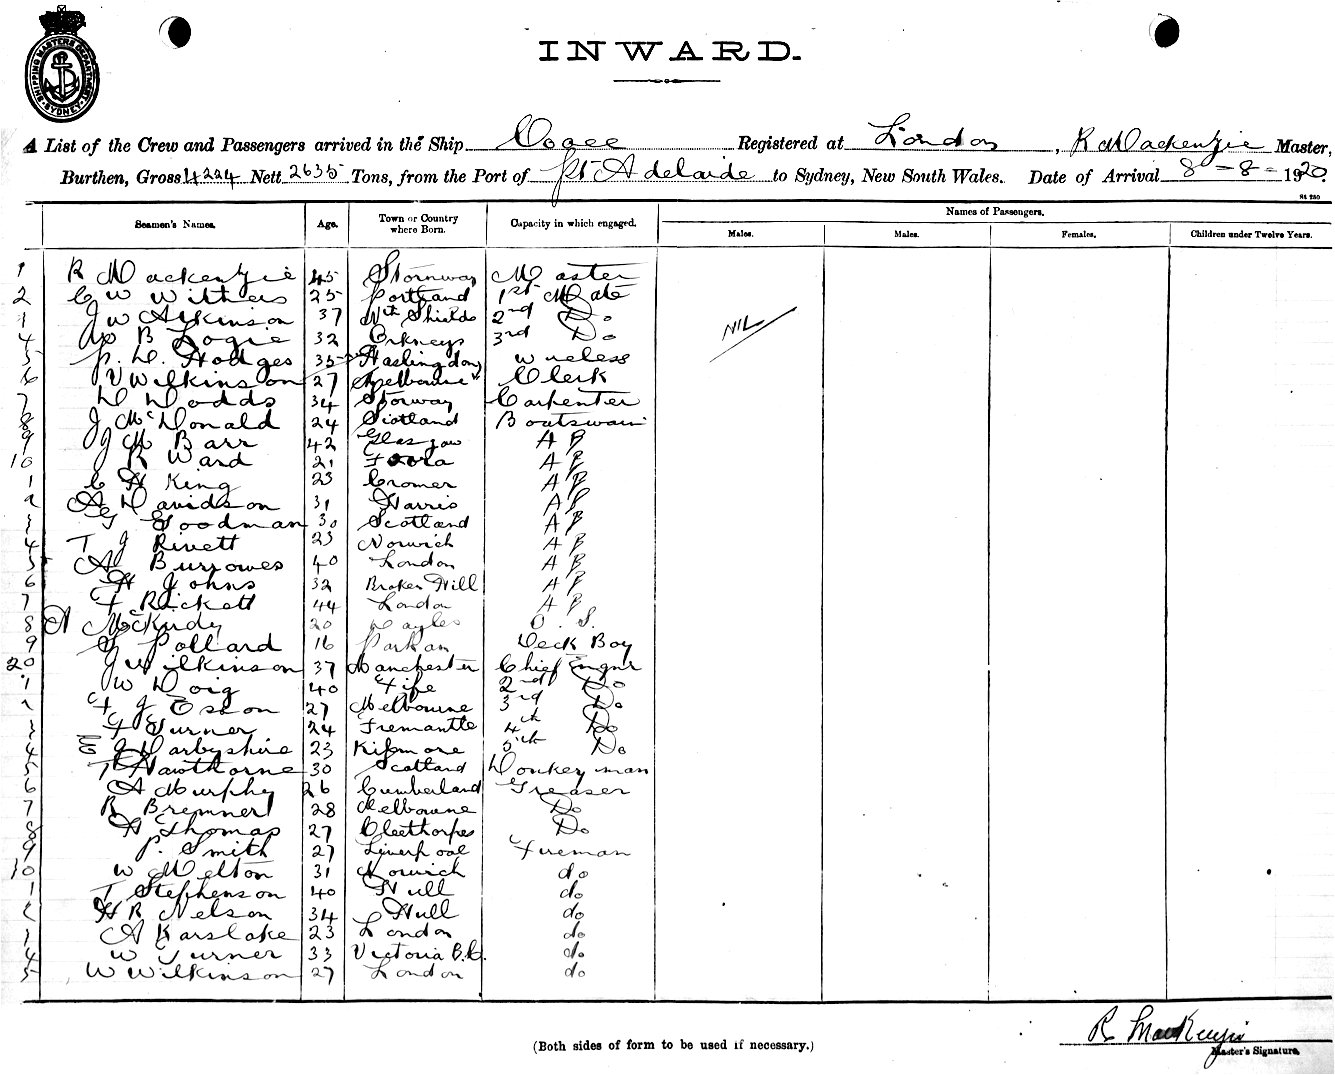 SHIPPING MASTERS DEPARTMENT SYDNEY
INWARD.
A List of the Crew and Passengers arrived in the Ship Cogee Registered at London, R Mackenzie Master,
Burthen, Gross 4224 Nett 2635 Tons, from the Port of Pt Adelaide to Sydney, New South Wales. Date of Arrival 8-8-1920.
Seamen's Names. Age. Town or Country where Born. Capacity in which engaged. Names of Passengers.
Males. Males. Females. Children under Twelve Years.
1 R Mackenzie 45 Stornway Master
2 C W Withers 25 Portland 1st Mate
1 J W Atkinson 37 Nth Shields 2nd Do
NIL
4 B Logie 32 Orkneys 3rd Do
5 Hodges 35 Haslingdon wireless
6 V Wilkinson 27 Melbourne Clerk
7 D Dodds 34 Storway Carpenter
8 J McDonald 24 Scotland Boatswain
9 J M Barr 42 Glasgow A B
10 R Ward 21 A B
1 C H King 23 Cromer A B
2 A Davidson 31 Harris A B
3 G Goodman 30 Scotland A B
4 T J Rivett 23 Norwich A B
5 A Burrowes 40 London A B
6 H Johns 32 Broken Hill A B
7 F Rickett 44 London A B
8 A McKirdy 20 O. S.
9 G Pollard 16 Deck Boy
20 J Wilkinson 37 Manchester Chief Engnr
1 W Doig 40 Fife 2nd Do
2 F J Esson 27 Melbourne 3rd Do
3 F Turner 24 Fremantle 4th Do
4 J Darbyshire 23 Kilmore 5th Do
5 T Hawthorne 30 Scotland Donkeyman
6 A Murphy 26 Cumberland Greaser
7 R Bremner 28 Melbourne Do
8 H Thomas 27 Cleethorpes Do
9 P. Smith 27 Liverpool Fireman
30 W Melton 31 Norwich do
1 T Stephenson 40 Hull do
2 H R Nelson 34 Hull do
3 A Karslake 23 London do
4 W Turner 33 Victoria B.C. do
5 W Wilkinson 27 London do
R MacKenzie
Master's Signature.
(Both sides of form to be used if necessary.)